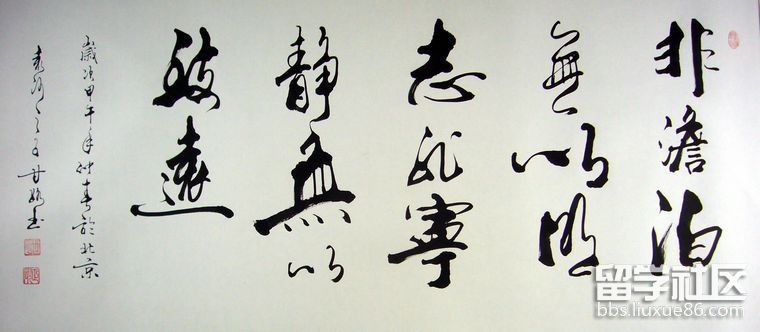 非澹泊
無以明
志非寧
静無以
致遠
歲次甲午年仲春於北京
書
留学社区
bbs.liuxue86.com